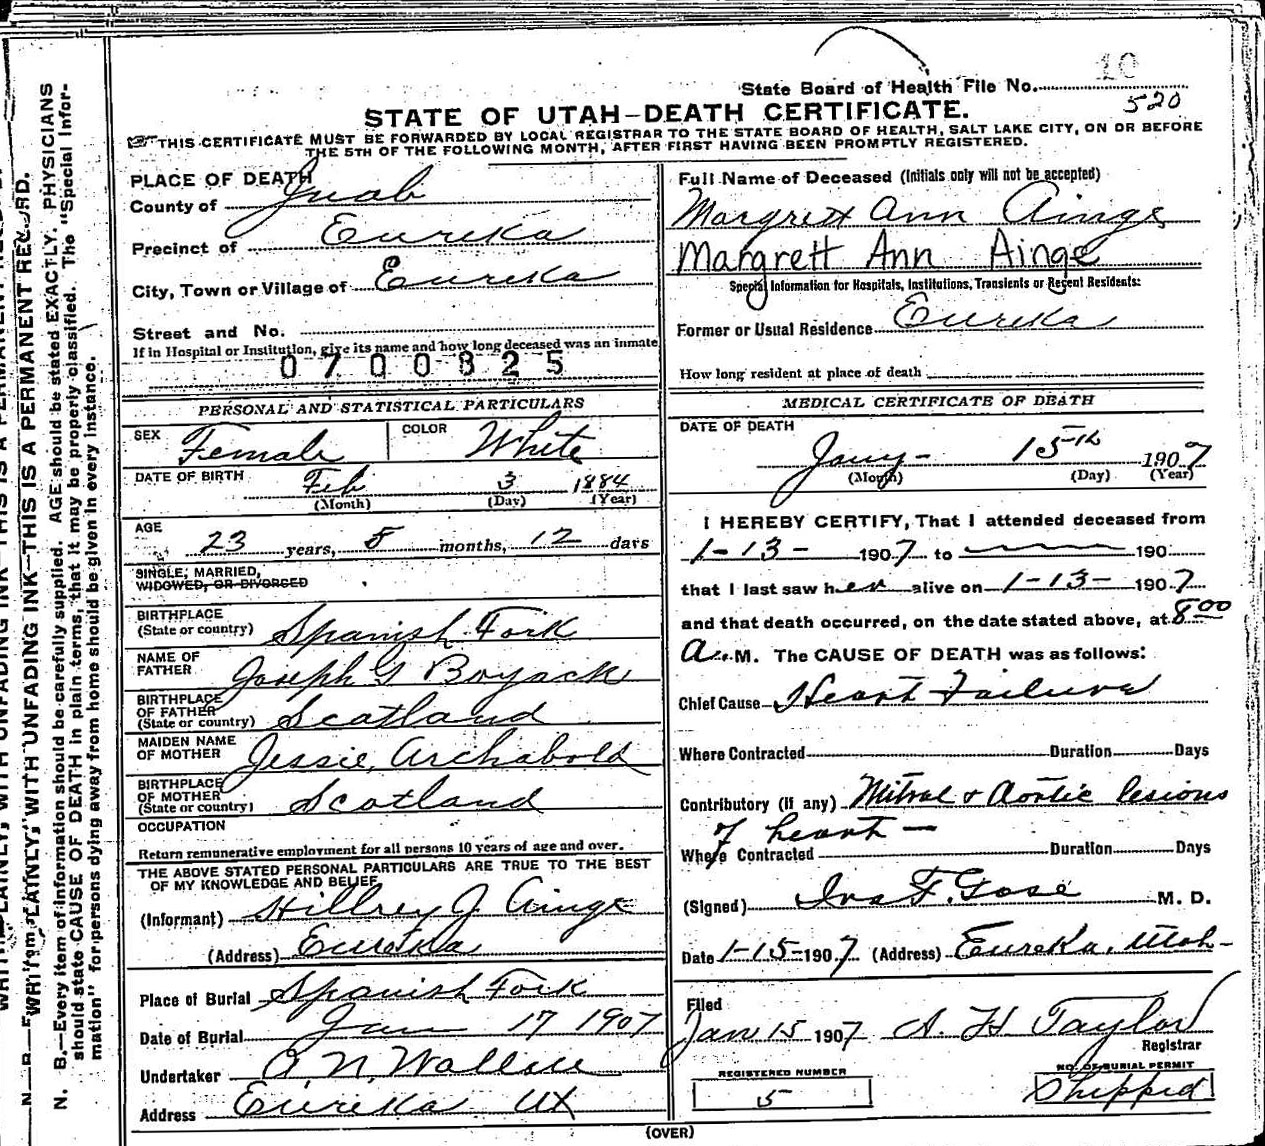 10
State Board of Health File No.
520
STATE OF UTAH—DEATH CERTIFICATE.
THIS CERTIFICATE MUST BE FORWARDED BY LOCAL REGISTRAR TO THE STATE BOARD OF HEALTH, SALT LAKE CITY, ON OR BEFORE
THE 5TH OF THE FOLLOWING MONTH, AFTER FIRST HAVING BEEN PROMPTLY REGISTERED.
PLACE OF DEATH
County of Juab
Precinct of Eureka
City, Town or Village of Eureka
Street and No.
If in Hospital or Institution, give its name and how long deceased was an inmate
0700825
PERSONAL AND STATISTICAL PARTICULARS
SEX Female COLOR White
DATE OF BIRTH Feb 3 1884
(Month) (Day) (Year)
AGE 23 years, 5 months, 12 days
SINGLE, MARRIED,
WIDOWED, OR DIVORCED
BIRTHPLACE
(State or country) Spanish Fork
NAME OF
FATHER Joseph G Boyack
BIRTHPLACE
OF FATHER
(State or country) Scotland
MAIDEN NAME
OF MOTHER Jessie Archabold
BIRTHPLACE
OF MOTHER
(State or country) Scotland
OCCUPATION
Return remunerative employment for all persons 10 years of age and over.
THE ABOVE STATED PERSONAL PARTICULARS ARE TRUE TO THE BEST
OF MY KNOWLEDGE AND BELIEF
(Informant) Hillrey J. Ainge
(Address) Eureka
Place of Burial Spanish Fork
Date of Burial Jan 17 1907
Undertaker A. N. Wallace
Address Eureka UX
Full Name of Deceased (Initials only will not be accepted)
Margrett Ann Ainge
Margrett Ann Ainge
Special Information for Hospitals, Institutions, Transients or Recent Residents:
Former or Usual Residence Eureka
How long resident at place of death
MEDICAL CERTIFICATE OF DEATH
DATE OF DEATH
Jany- 15th 1907
(Month) (Day) (Year)
I HEREBY CERTIFY, That I attended deceased from
1-13- 1907 to 190
that I last saw her alive on 1-13- 1907
and that death occurred, on the date stated above, at 8.00
A. M. The CAUSE OF DEATH was as follows:
Chief Cause Heart Failure
Where Contracted Duration Days
Contributory (if any) Mitral & Aortic lesions
of heart —
Where Contracted Duration Days
(Signed) Ira F. Gose M. D.
Date 1-15-1907 (Address) Eureka, Utah-
Filed
Jan 15 1907 A. H. Taylor
Registrar
REGISTERED NUMBER
5
NO. OF BURIAL PERMIT
Shipped
(OVER)
N. B.—Every item of information should be carefully supplied. AGE should be stated EXACTLY. PHYSICIANS
should state CAUSE OF DEATH in plain terms, that it may be properly classified. The "Special Infor-
mation" for persons dying away from home should be given in every instance.
WITH UNFADING INK—THIS IS A PERMANENT RECORD.